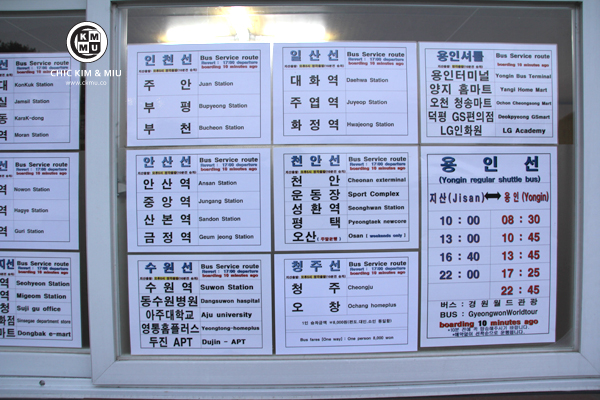 KM
MU
CHIC KIM & MIU
www.ckmu.co
KonKuk Station
Jamsil Station
KaraK-dong
Moran Station
Nowon Station
Hagye Station
Guri Station
Seohyeon Station
Migeom Station
Suji gu office
Dongbak e-mart
인천선
Bus Service route
Resort : 17:00 departure
boarding 10 minutes ago
주 안 Juan Station
부 평 Bupyeong Station
부 천 Bucheon Station
일산선
Bus Service route
Resort : 17:00 departure
boarding 10 minutes ago
대 화 역 Daehwa Station
주 엽 역 Juyeop Station
화 정 역 Hwajeong Station
용인셔틀
Bus Service route
Resort : 17:00 departure
boarding 10 minutes ago
용인터미널 Yongin Bus Terminal
양지 홈마트 Yangi Home Mart
오천 청송마트 Ochon Cheongsong Mart
덕평 GS편의점 Deokpyeong GSmart
LG인화원 LG Academy
안산선
Bus Service route
Resort : 17:00 departure
boarding 10 minutes ago
안 산 역 Ansan Station
중 앙 역 Jungang Station
산 본 역 Sandon Station
금 정 역 Geum jeong Station
천안선
Bus Service route
Resort : 17:00 departure
boarding 10 minutes ago
천 안 Cheonan exterminal
운 동 장 Sport Complex
성 환 역 Seonghwan Station
평 택 Pyeongtaek newcore
오산 (주말운행) Osan ( weekends only )
수원선
Bus Service route
Resort : 17:00 departure
boarding 10 minutes ago
수 원 역 Suwon Station
동수원병원 Dangsuwon hospital
아주대학교 Aju university
영통홈플러스 Yeongtong-homeplus
두진 APT Dujin - APT
청주선
Bus Service route
Resort : 17:00 departure
boarding 10 minutes ago
청 주 Cheongju
오 창 Ochang homeplus
Bus fares (One way) : One person 6,000 won
용 인 선
(Yongin regular shuttle bus)
지산(Jisan) 용인(Yongin)
10 : 00 08 : 30
13 : 00 10 : 45
16 : 40 13 : 45
22 : 00 17 : 25
22 : 45
버스 : 경원월드관광
BUS : GyeongwonWorldtour
boarding 10 minutes ago